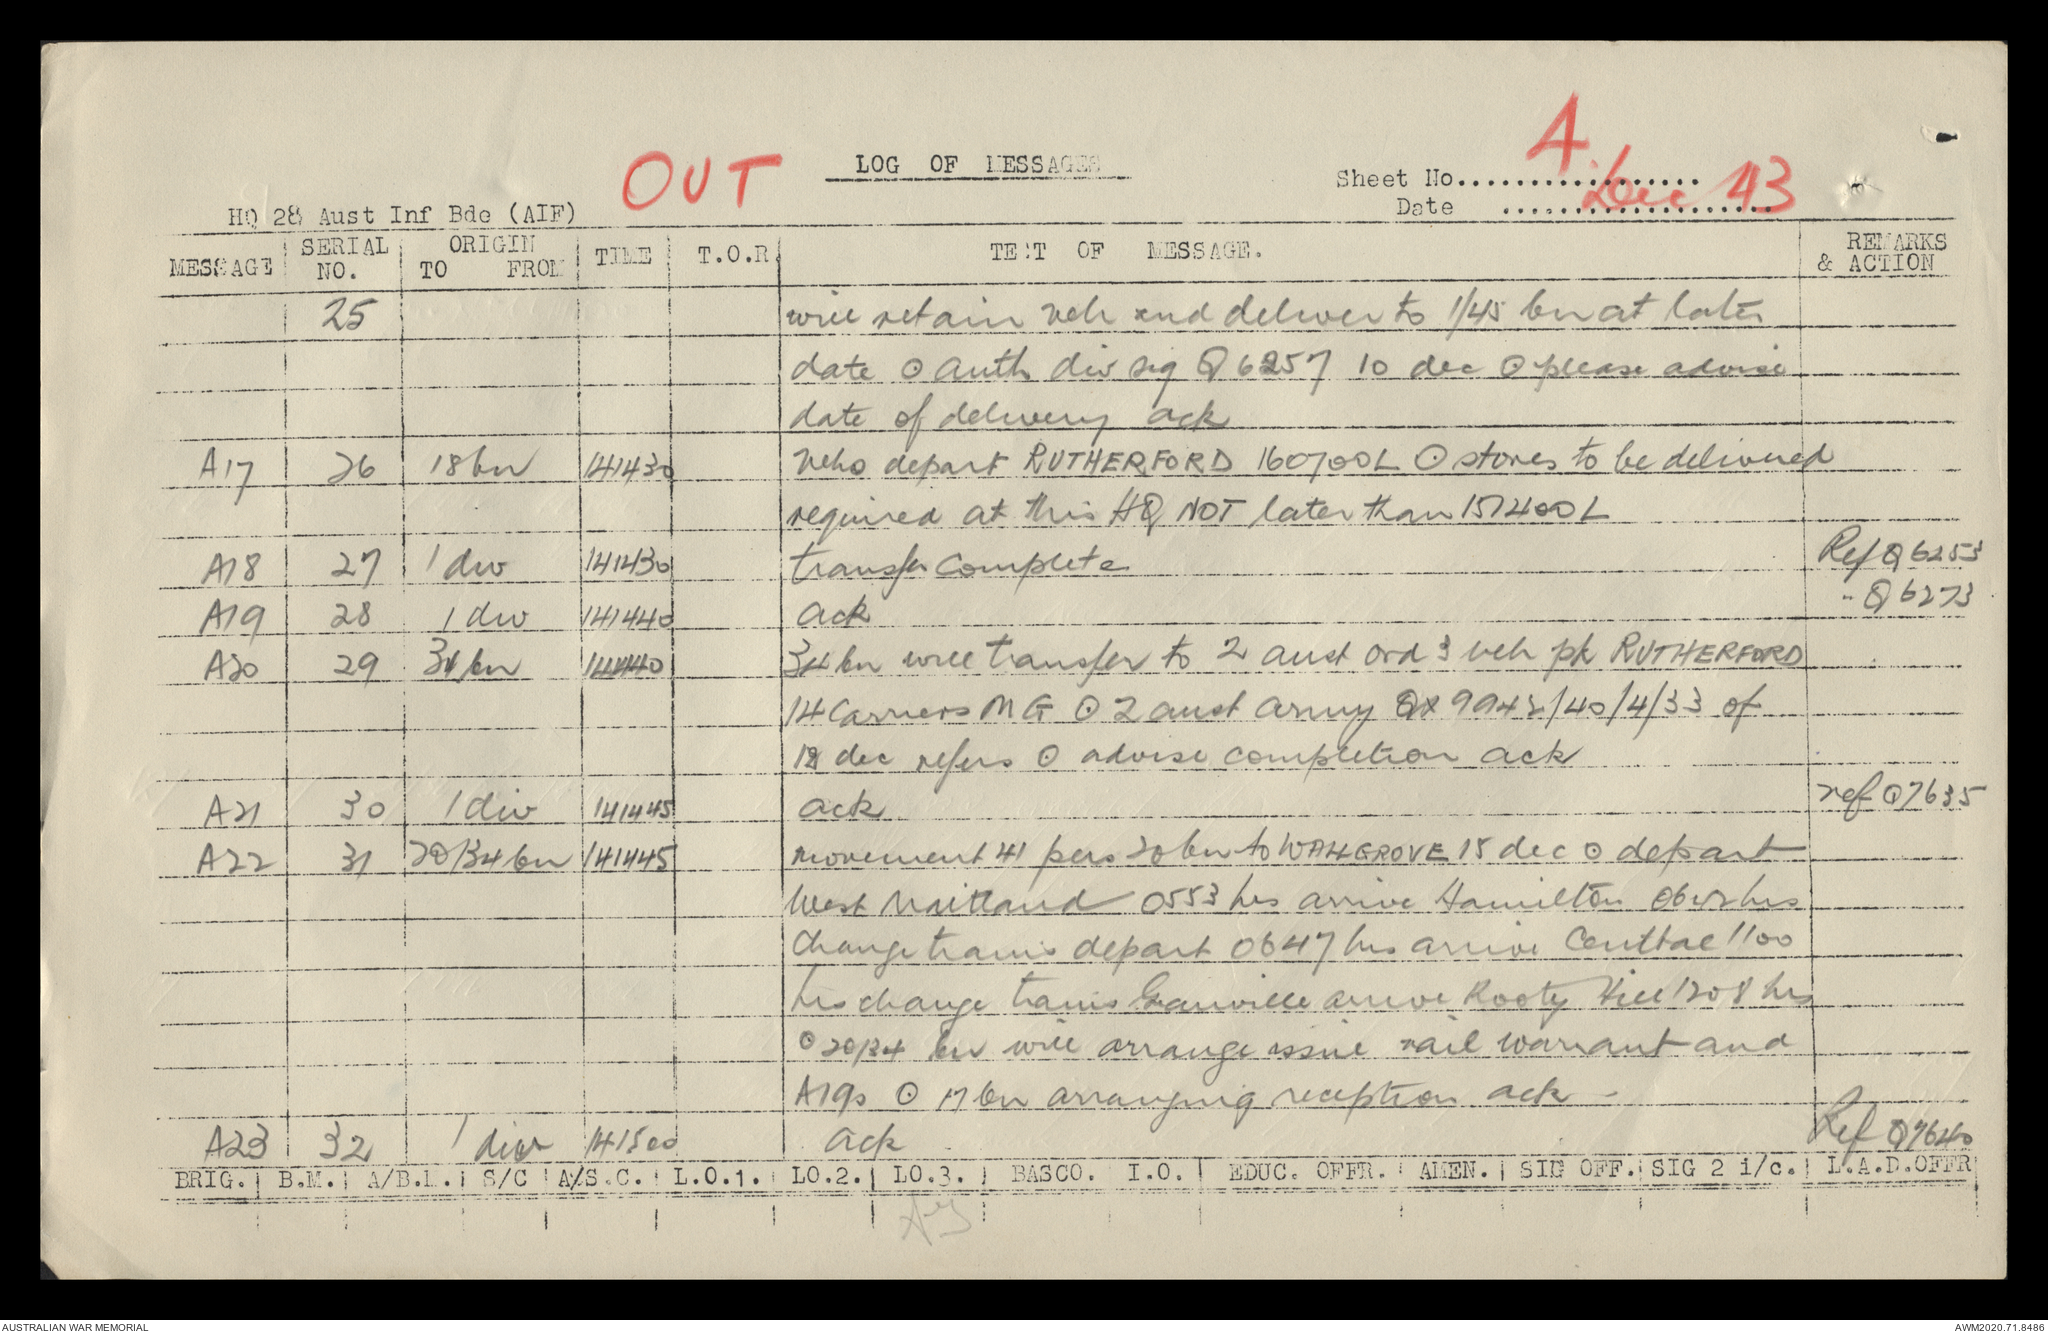 OUT
LOG OF MESSAGES
Sheet No................... 4.
Date ................... Dec 43
HQ 28 Aust Inf Bde (AIF)
MESSAGE SERIAL NO. ORIGIN TO FROM TIME T.O.R. TEXT OF MESSAGE. REMARKS & ACTION
25 will retain veh and deliver to 1/45 bn at later
date ⊙ auth div sig Q6257 10 dec ⊙ please advise
date of delivery ack
A17 26 18 bn 141430 vehs depart RUTHERFORD 160700L ⊙ stores to be delivered
required at this HQ NOT later than 151400L
A18 27 1 div 141430 transfer complete Ref Q6253
A19 28 1 div 141440 ack " Q6273
A20 29 34 bn 141440 34 bn will transfer to 2 aust ord 3 veh pk RUTHERFORD
14 carriers MG ⊙ 2 aust army /40/4/33 of
dec refers ⊙ advise completion ack
A21 30 1 div 141445 ack ref Q7635
A22 31 20/34 bn 141445 movement 41 pers 20 bn to WALLGROVE 15 dec ⊙ depart
West Maitland 0553 hrs arrive Hamilton hrs
change trains depart 0647 hrs arrive Central 1100
hrs change trains Granville arrive Rooty Hill 1208 hrs
⊙ 20/34 bn will arrange issue rail warrant and
A79s ⊙ 17 bn arranging reception ack -
A23 32 1 div 141500 ack Ref Q7640
BRIG. B.M. A/B.M. S/C A/S.C. L.O.1. LO.2. LO.3. BASCO. I.O. EDUC. OFFR. AMEN. SIG OFF. SIG 2 i/c. L.A.D.OFFR
AUSTRALIAN WAR MEMORIAL
AWM2020.71.8486